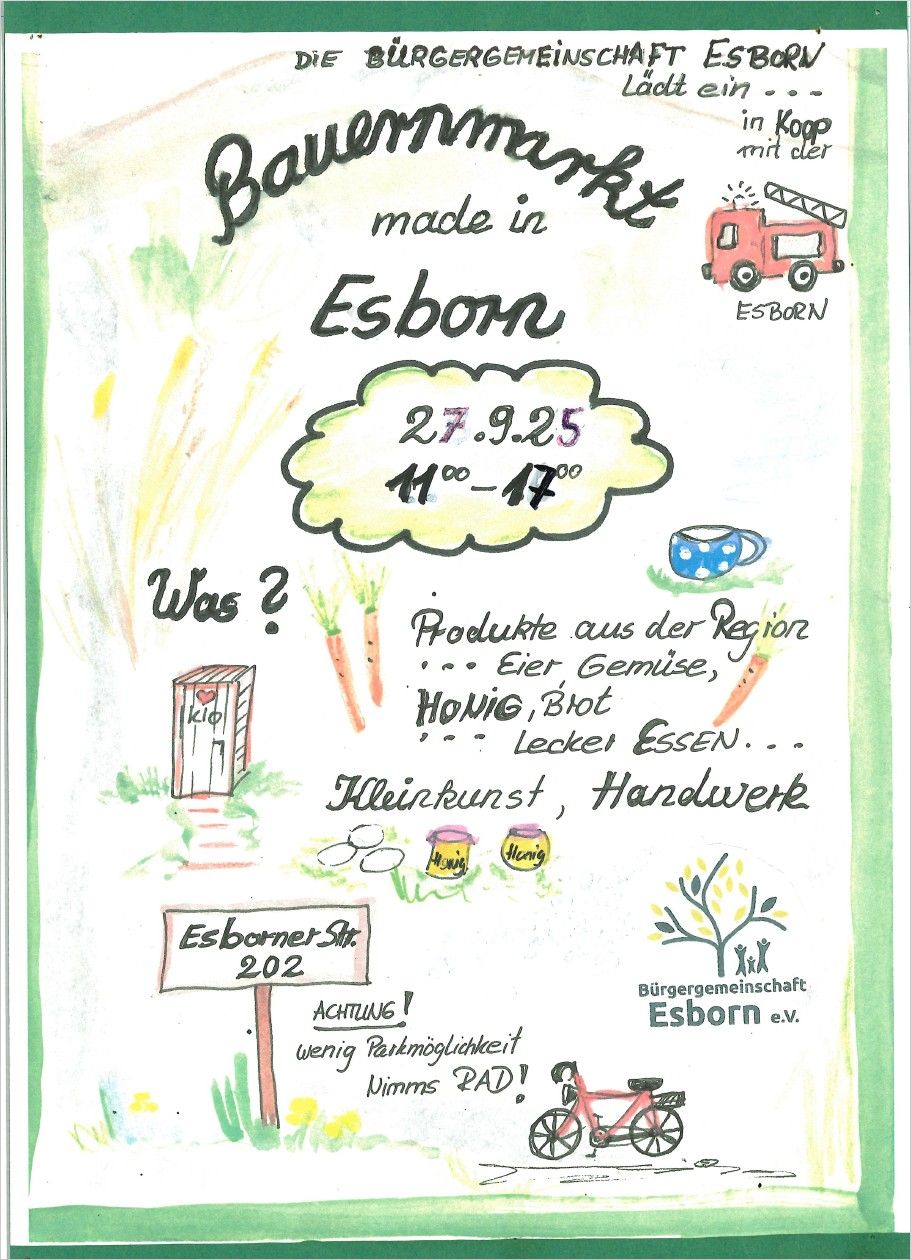 DIE BÜRGERGEMEINSCHAFT ESBORN
Lädt ein ...
in Koop
mit der
ESBORN
Bauernmarkt
made in
Esborn
27.9.25
11⁰⁰ - 17⁰⁰
Was ?
Produkte aus der Region
... Eier, Gemüse,
HONIG, Brot
... Lecker ESSEN...
Kleinkunst, Handwerk
klo
Honig
Honig
Esborner Str.
202
ACHTUNG!
wenig Parkmöglichkeit
Nimms RAD!
Bürgergemeinschaft
Esborn e.V.